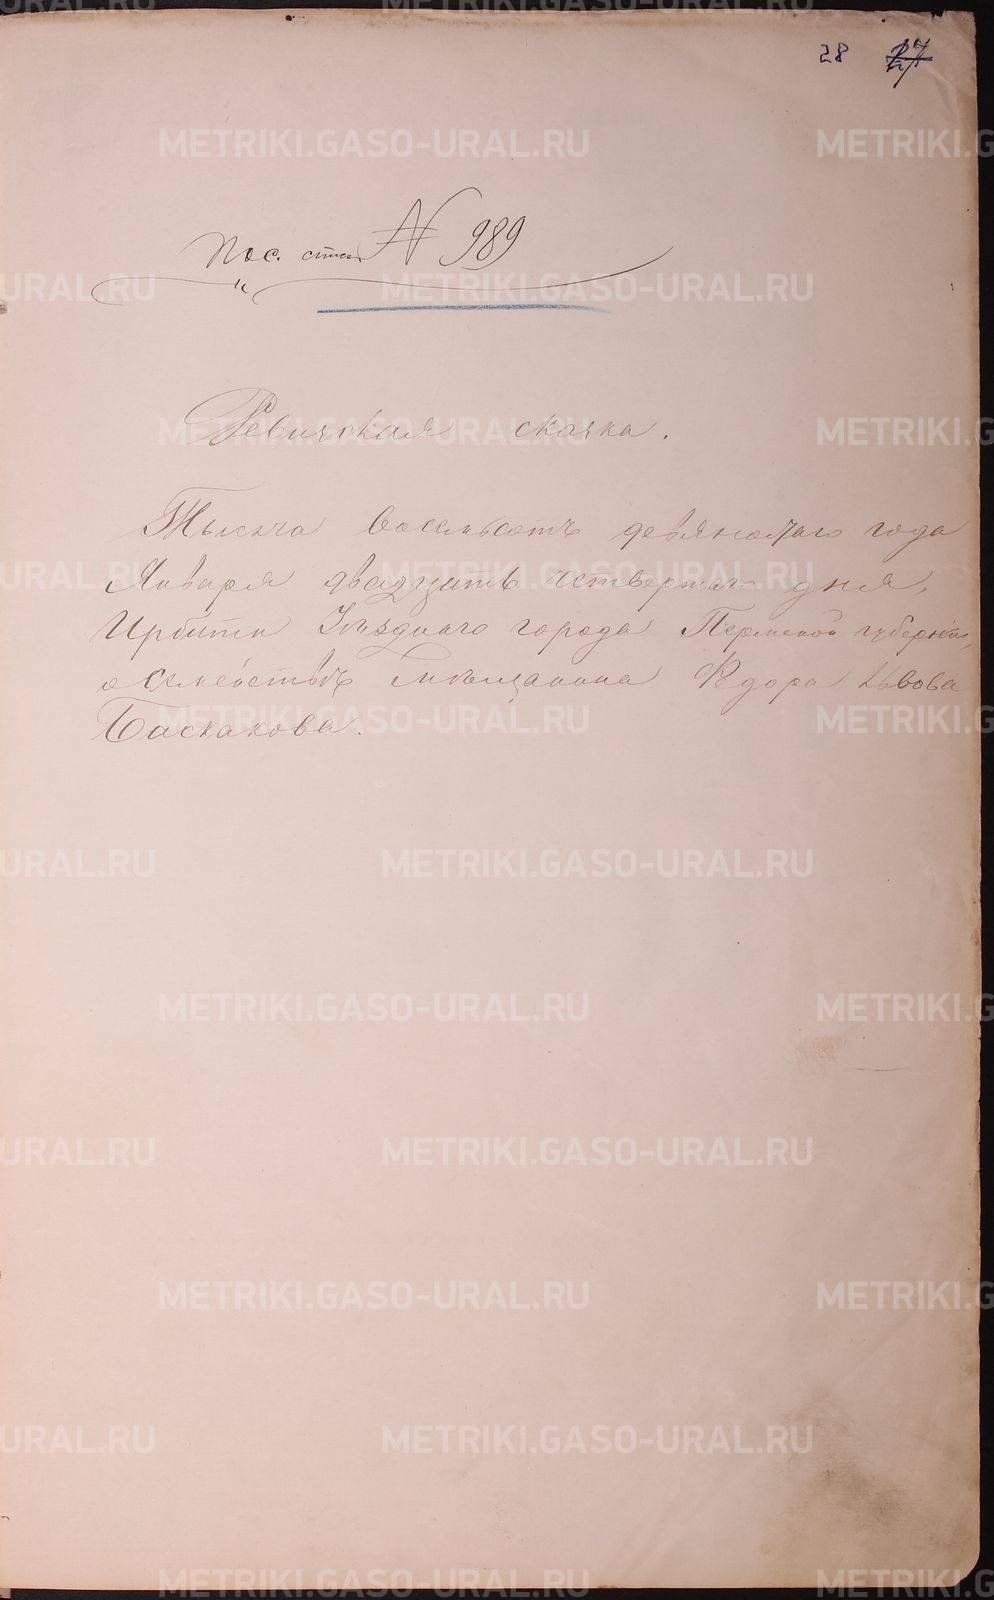 28 27
Пос. спис. № 989
Ревизская сказка.
Тысяча восемьсотъ девяностаго года
Января двадцать четвертаго дня,
Ирбити Уѣзднаго города Пермской губерніи,
о семействѣ мѣщанина Ѳедора Львова
Баскакова.
METRIKI.GASO-URAL.RU